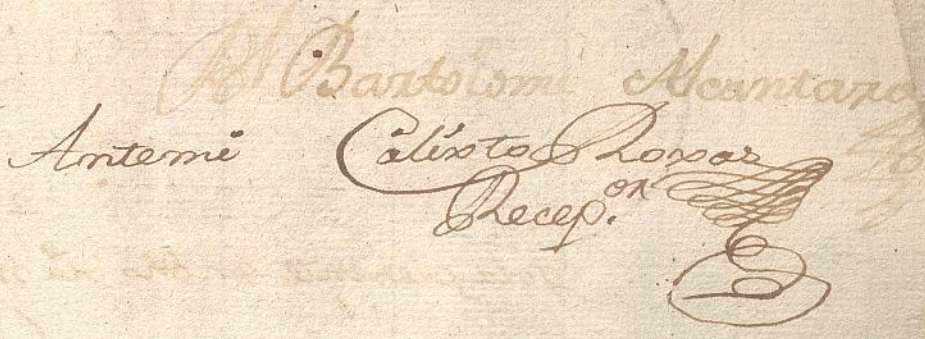 Bartolome Alcantara
Antemi Calixto Roxas
Recep.or